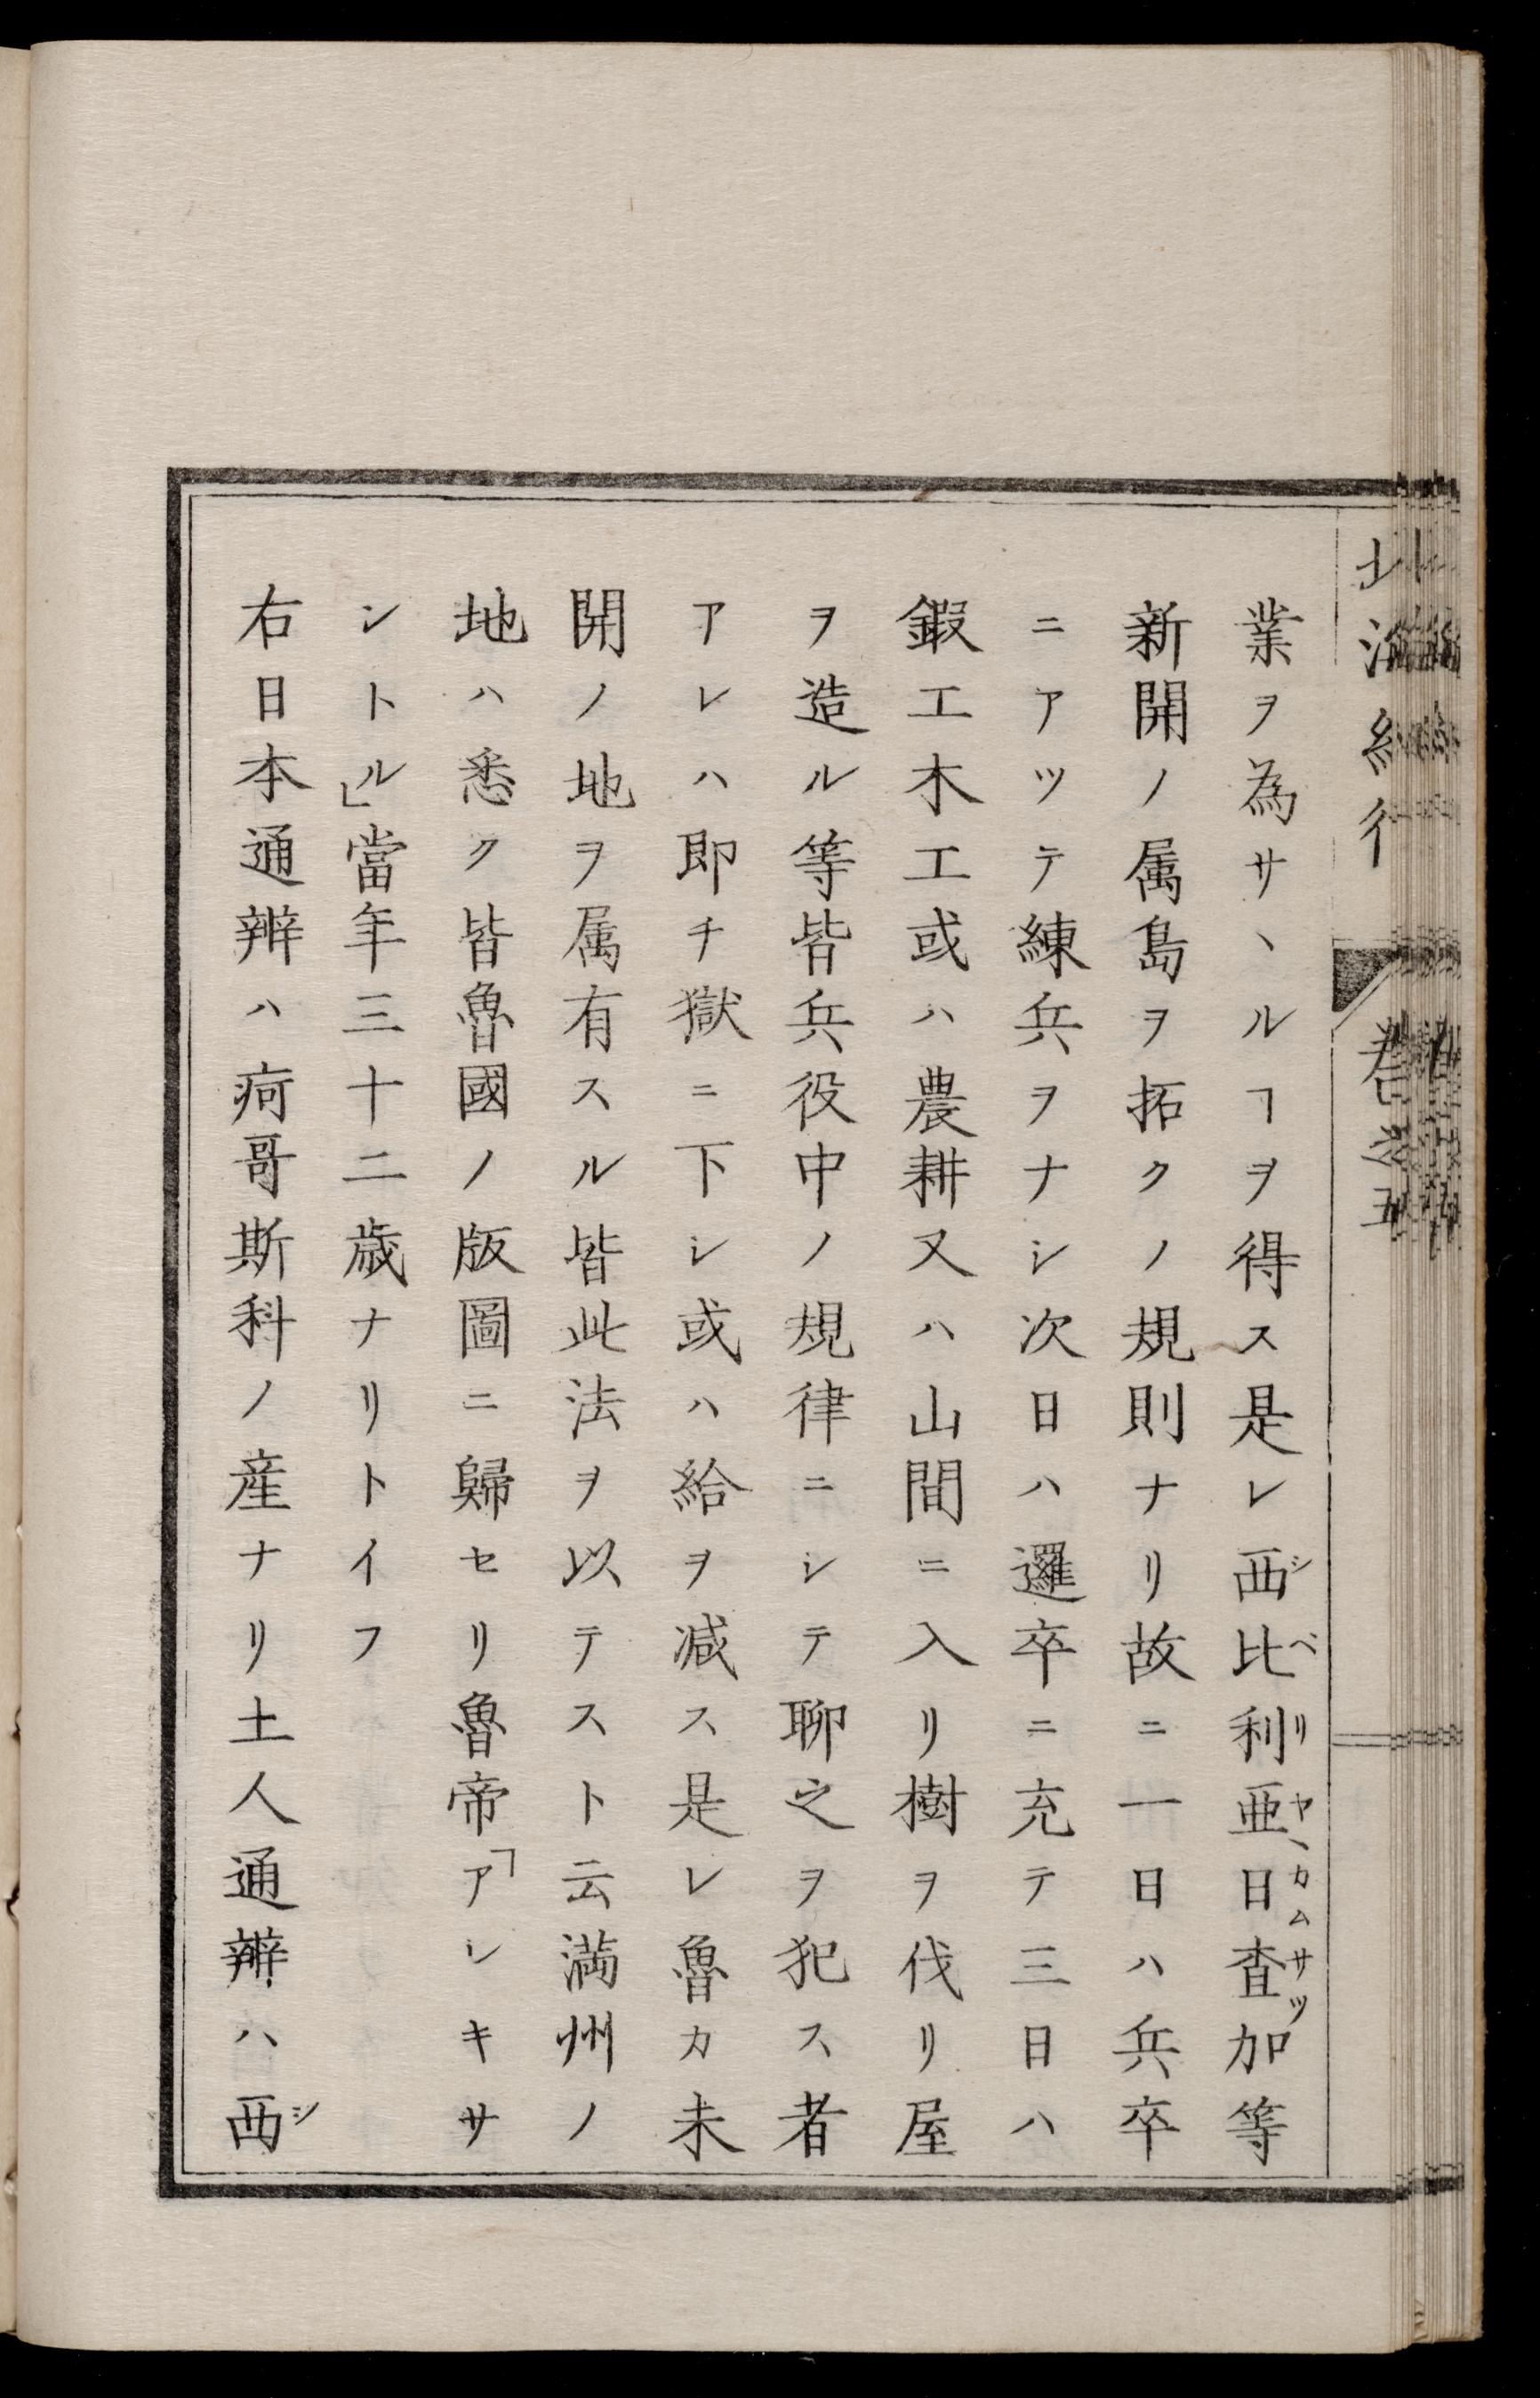 業ヲ為サヽルヿヲ得ス是レ西比利亜日査加等
新開ノ属島ヲ拓クノ規則ナリ故ニ一日ハ兵卒
ニアツテ練兵ヲナシ次日ハ邏卒ニ充テ三日ハ
鍛工木工或ハ農耕又ハ山間ニ入リ樹ヲ伐リ屋
ヲ造ル等皆兵役中ノ規律ニシテ聊之ヲ犯ス者
アレハ即チ獄ニ下シ或ハ給ヲ减ス是レ魯カ未
開ノ地ヲ属有スル皆此法ヲ以テスト云満州ノ
地ハ悉ク皆魯國ノ版圖ニ歸セリ魯帝「アレキサ
ントル」當年三十二歳ナリトイフ
右日本通辨ハ疴哥斯科ノ産ナリ土人通辨ハ西